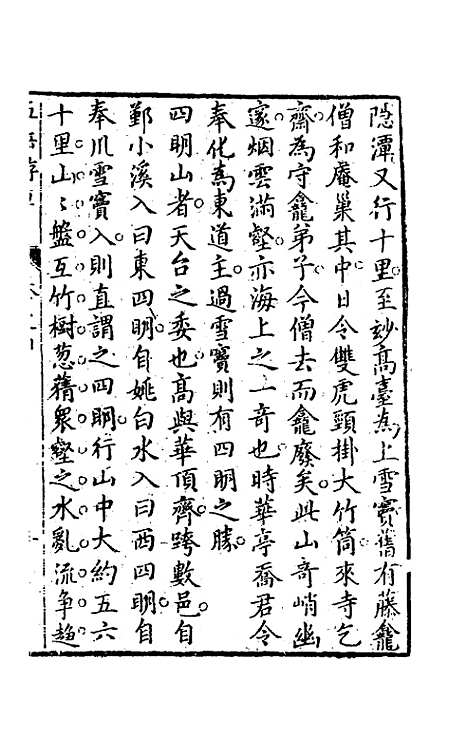 隱潭又行十里至妙高臺爲上雪竇舊有藤龕
僧和庵巢其中日令雙虎頸掛大竹筒來寺乞
齋為守龕弟子今僧去而龕廢矣此山奇峭幽
邃烟雲滿壑亦海上之一奇也時華亭喬君令
奉化為東道主過雪竇則有四明之勝
四明山者天台之委也高與華頂齊跨數邑自
鄞小溪入曰東四明自姚白水入曰西四明自
奉川雪竇入則直謂之四明行山中大約五六
十里山山盤互竹樹葱蒨衆壑之水亂流争趨